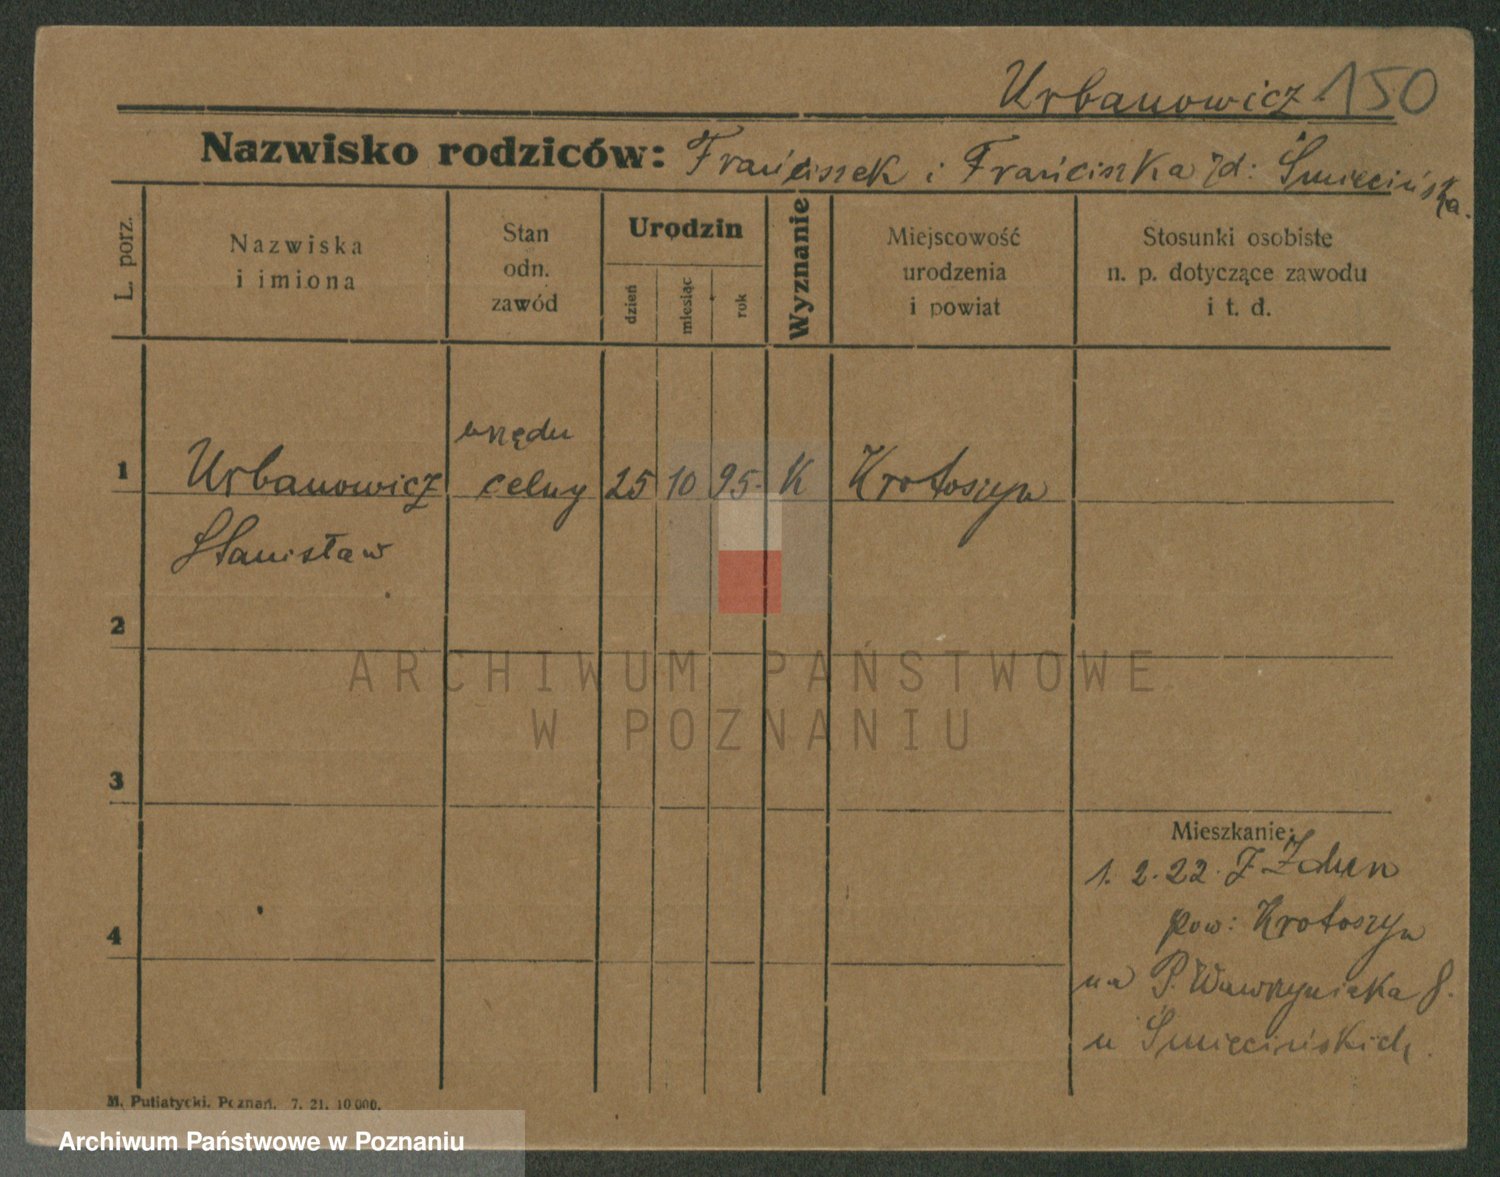 Urbanowicz 150
Nazwisko rodziców: Franciszek i Franciszka zd: Śmiecińska.
L. porz.
Nazwiska
i imiona
Stan
odn.
zawód
Urodzin
dzień
miesiąc
rok
Wyznanie
Miejscowość
urodzenia
i powiat
Stosunki osobiste
n. p. dotyczące zawodu
i t. d.
1
Urbanowicz
Stanisław
urzędn
celny
25 10 95. K Krotoszyn
2
3
4
Mieszkanie:
1. 2. 22. Z Zdun
pow: Krotoszyn
na P. Wawrzyniaka 8.
u Śmiecińskich.
M. Putiatycki. Poznań. 7. 21. 10 000.
ARCHIWUM PAŃSTWOWE
W POZNANIU
Archiwum Państwowe w Poznaniu